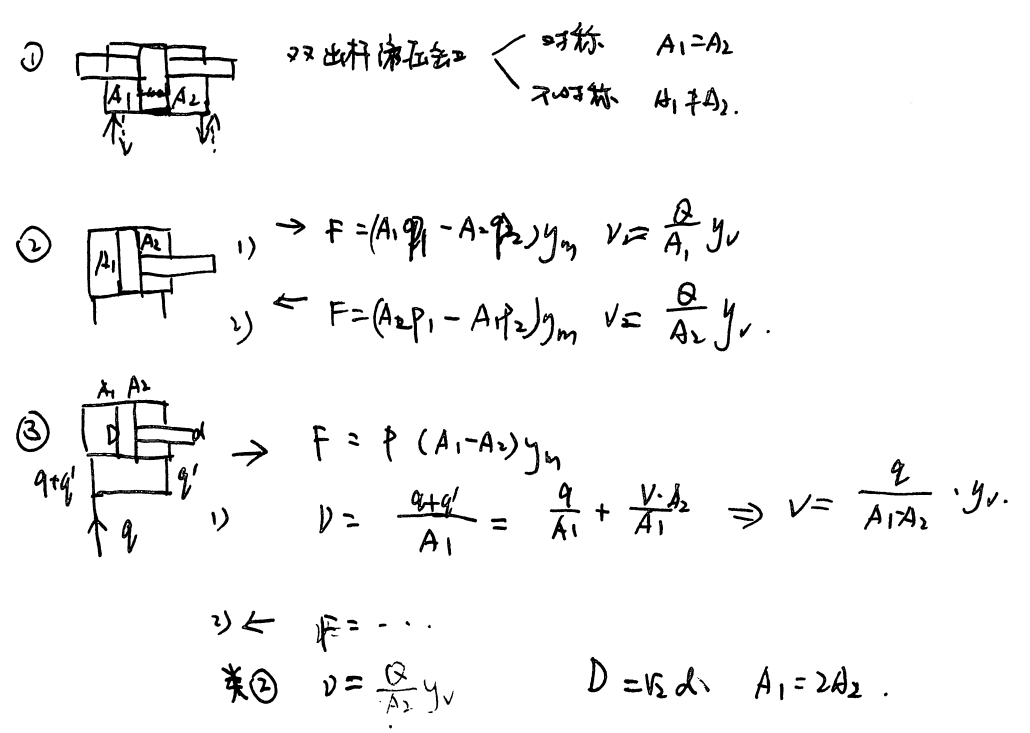 ① A₁ A₂ 双出杆液压缸 对称 A₁=A₂
不对称 A₁≠A₂.
② A₁ A₂ 1) → F=(A₁p₁-A₂p₂)y_m v₁= Q/A₁ y_v
2) ← F=(A₂p₁-A₁p₂)y_m v₂= Q/A₂ y_v.
③ A₁ A₂ D d → F = p (A₁-A₂)y_m
q+q' q' q 1) v= (q+q')/A₁ = q/A₁ + v·A₂/A₁ ⇒ v= q/(A₁-A₂) ·y_v.
2) ← F= ...
类② v= Q/A₂ y_v D=√2 d、 A₁=2A₂.